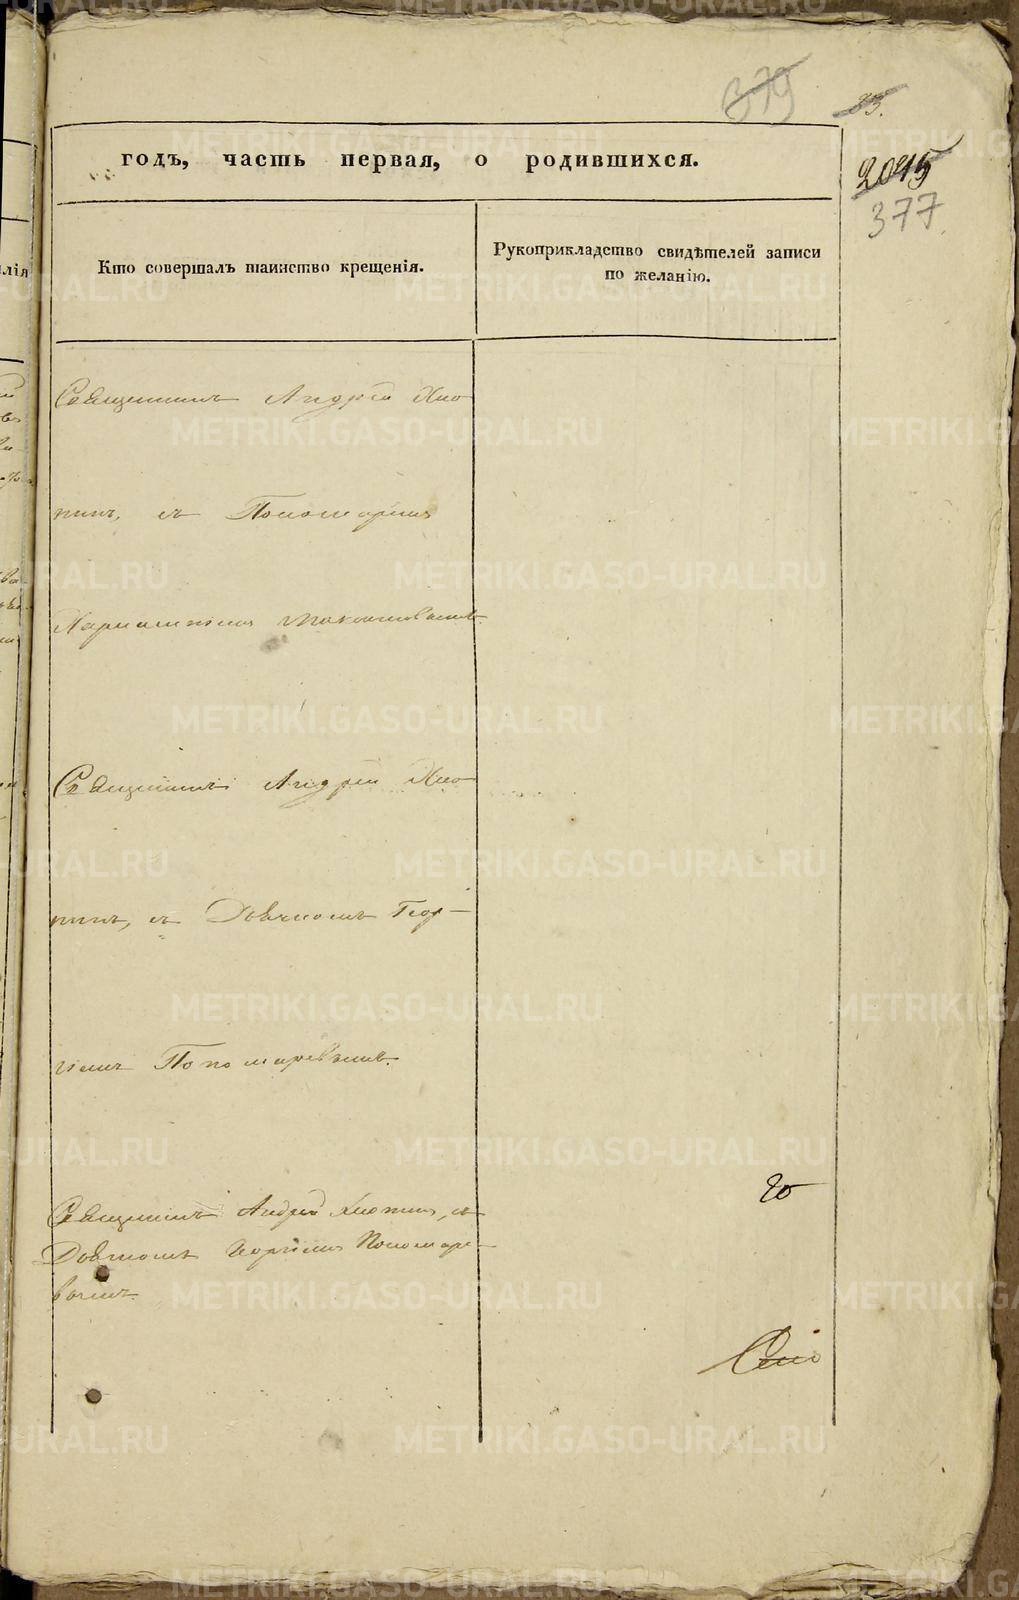 379
83.
2045
377
годъ, часть первая, о родившихся.
Кто совершалъ таинство крещенія.
Рукоприкладство свидѣтелей записи
по желанію.
Священникъ Андрей Хио
нинъ, съ Пономаремъ
Священникъ Андрей Хио
нинъ, съ Дьячкомъ Геор-
гіемъ Пономаревымъ.
Священникъ Андрей съ
Дьячкомъ Георгіемъ Пономаре-
вымъ.
METRIKI.GASO-URAL.RU